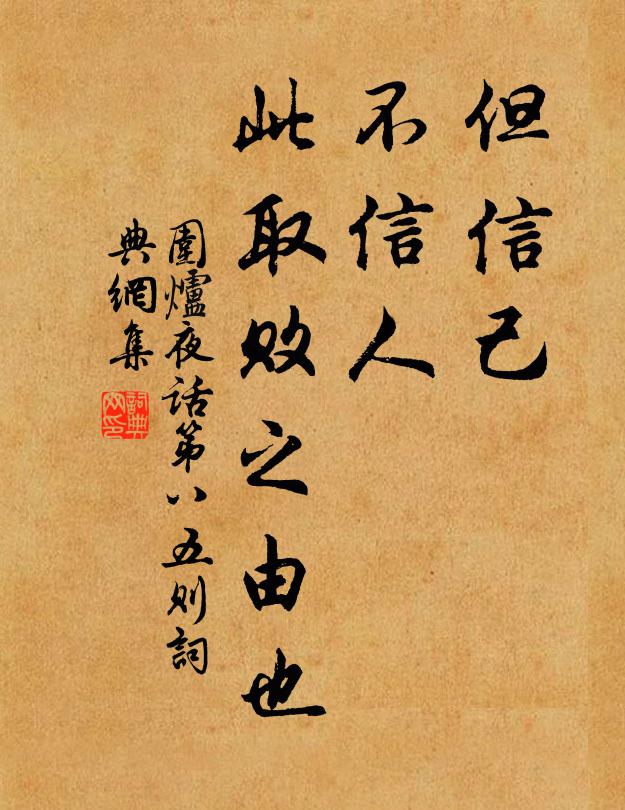 但信己
不信人
此取敗之由也
圍爐夜話第八五則詞
典網集
詞典
网印